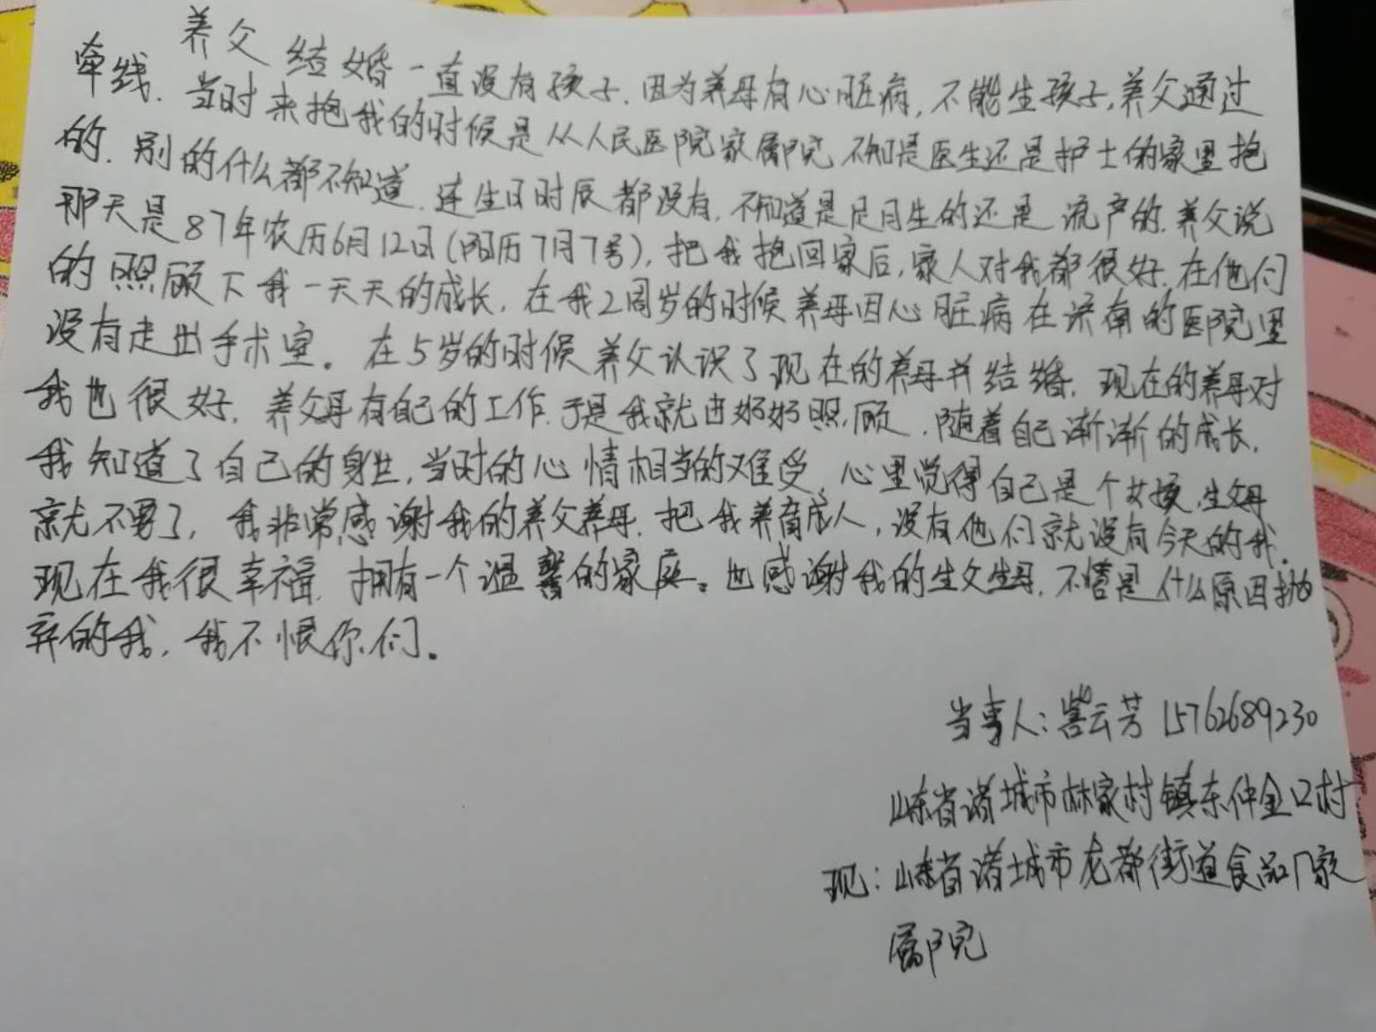 养父结婚一直没有孩子.因为养母有心脏病,不能生孩子,养父通过
牵线.当时来抱我的时候是从人民医院家属院不知是医生还是护士的家里抱
的.别的什么都不知道.连生日时辰都没有,不知道是足月生的还是流产的.养父说
那天是87年农历6月12日(阳历7月7号),把我抱回家后,家人对我都很好.在他们
的照顾下我一天天的成长.在我2周岁的时候养母因心脏病在济南的医院里
没有走出手术室。在5岁的时候养父认识了现在的养母并结婚.现在的养母对
我也很好.养父母有自己的工作.于是我就由妈妈照顾.随着自己渐渐的成长,
我知道了自己的身世,当时的心情相当的难受、心里觉得自己是个女孩,生父母
就不要了,我非常感谢我的养父养母.把我养育成人,没有他们就没有今天的我.
现在我很幸福.拥有一个温馨的家庭。也感谢我的生父生母,不管是什么原因抛
弃的我,我不恨你们。
当事人:云芳 15762689230
山东省诸城市林家村镇东仲金口村
现:山东省诸城市龙都街道食品厂家
属院